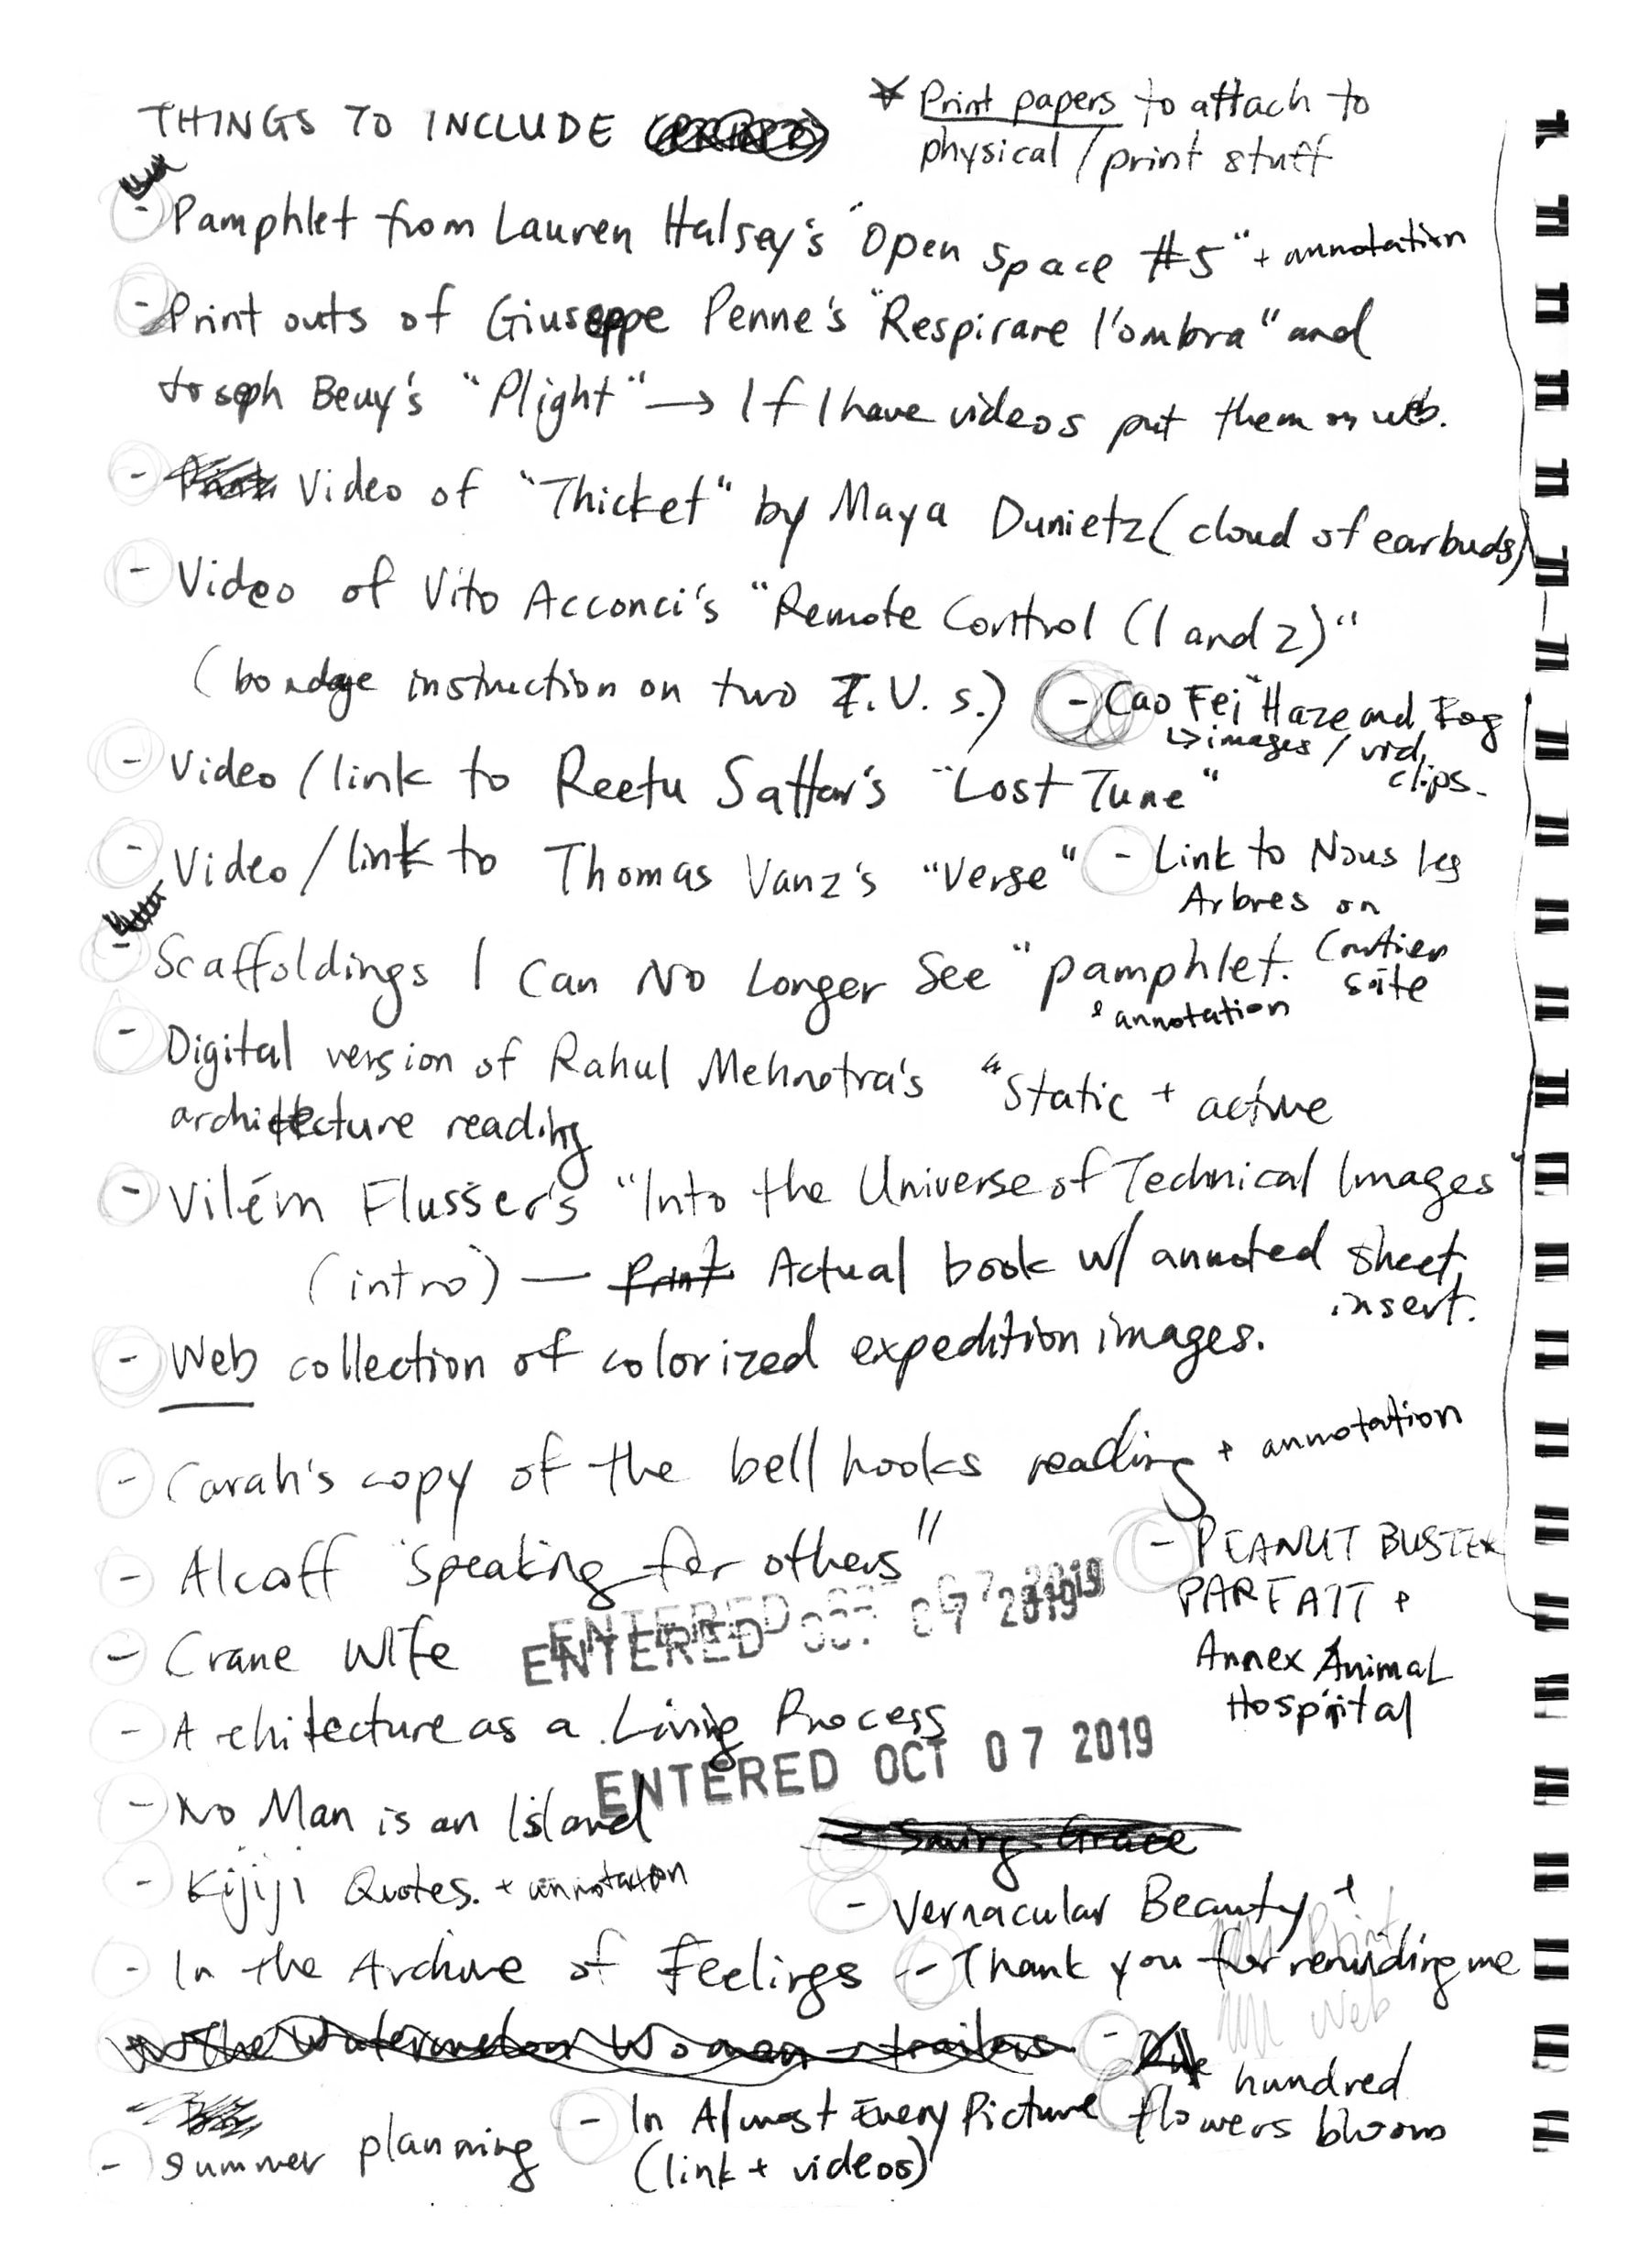 THINGS TO INCLUDE
* Print papers to attach to
physical / print stuff
- Pamphlet from Lauren Halsey's "Open Space #5" + annotation
- Print outs of Giuseppe Penne's "Respirare l'ombra" and
Joseph Beuy's "Plight" → If I have videos put them on web.
- Video of "Thicket" by Maya Dunietz (cloud of earbuds)
- Video of Vito Acconci's "Remote Control (1 and 2)"
(bondage instruction on two T.V.s.)
- Cao Fei "Haze and Fog
↳ images / vid,
clips.
- Video / link to Reetu Sattar's "Lost Tune"
- Video / link to Thomas Vanz's "Verse"
- Link to Nous les
Arbres on
Cartier
site
- Scaffoldings I Can No Longer See" pamphlet.
& annotation
- Digital version of Rahul Mehrotra's "Static + active
architecture reading
- Vilém Flusser's "Into the Universe of Technical Images"
(intro) — Print Actual book w/ annoted sheet,
insert.
- Web collection of colorized expedition images.
- Carah's copy of the bell hooks reading + annotation
- Alcoff "Speaking for others"
- PEANUT BUSTER
PARFAIT +
Annex Animal
Hospital
ENTERED OCT 07 2019
ENTERED OCT 07 2019
- Crane Wife
- Architecture as a Living Process
ENTERED OCT 07 2019
- No Man is an Island
- Saving Grace
- Kijiji Quotes. + annotation
- Vernacular Beauty +
Print
- In the Archive of Feelings
- Thank you for reminding me
Web
- The Watermelon Woman - trailer
- hundred
flowers bloom
- Summer planning
- In Almost Every Picture
(link + videos)